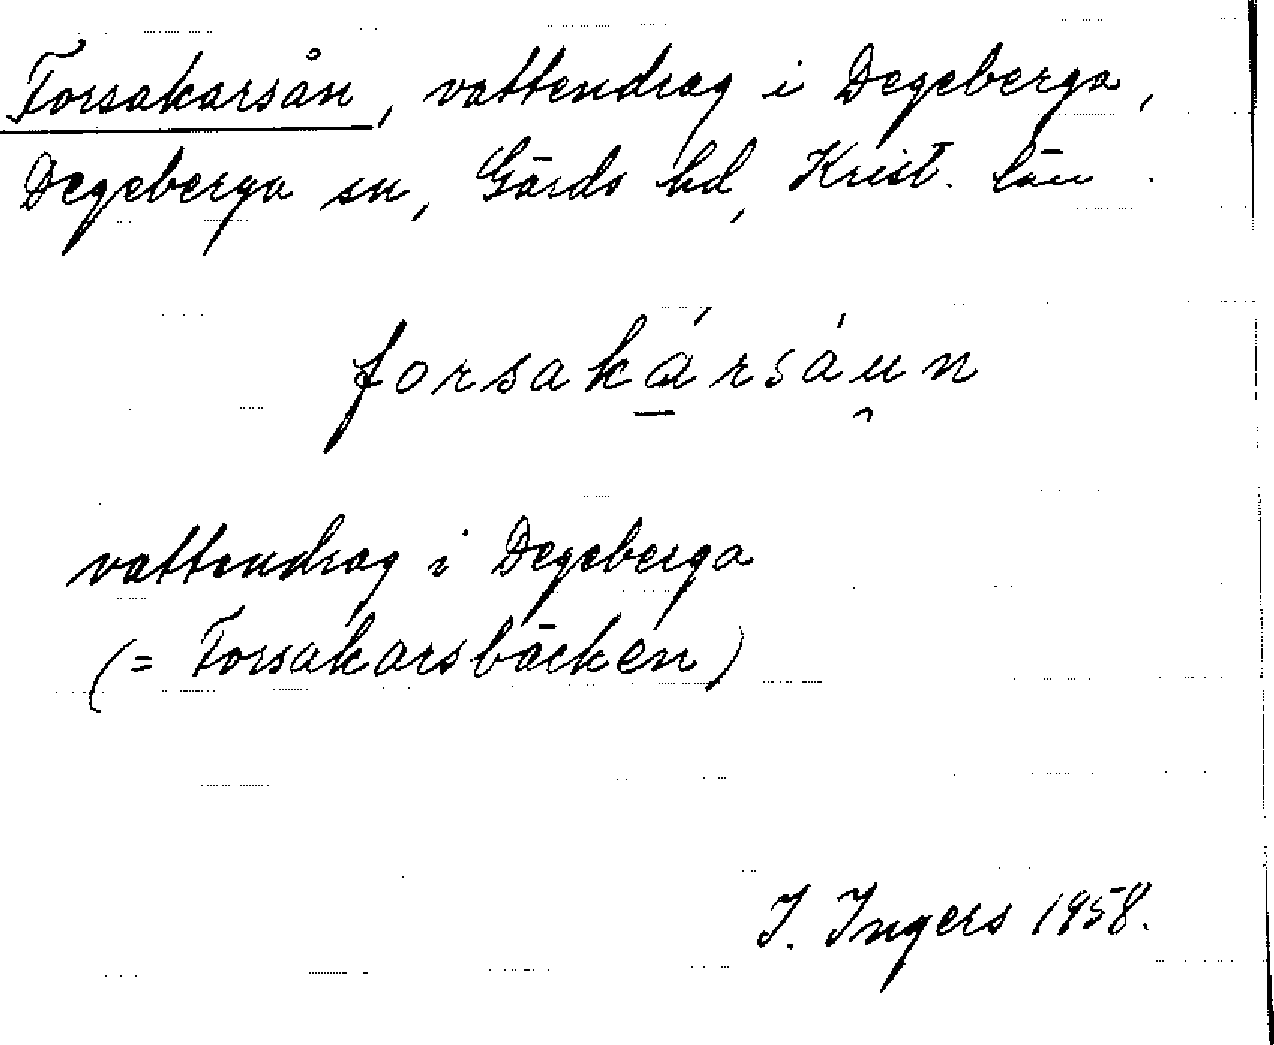 Forsakarsån, vattendrag i Degeberga,
Degeberga sn, Gärds hd, Krist. län.
forsakársáu̯n
vattendrag i Degeberga
(= Forsakarsbäcken)
I. Ingers 1958.